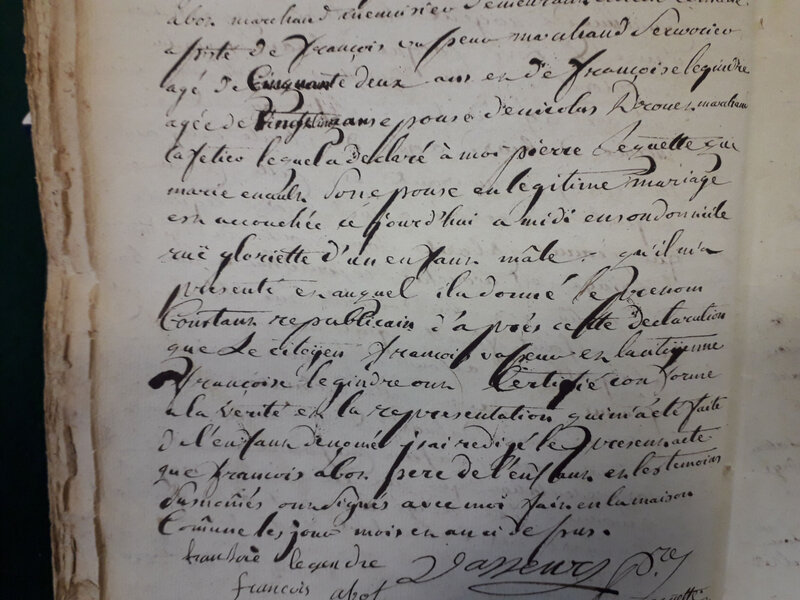 abon marchand
assisté de françois vasseur marchand Serrurier
agé de Cinquante deux ans et de françoise legindre
agée de vingt cinq ans epouse de nicolas Drouet marchand
lequel a declaré à moi pierre Sequette que
marie enault son epouse en legitime mariage
est accouchée ce jourd'hui a midi en son domicile
ruë gloriette d'un enfant mâle qu'il m'a
presenté et auquel il a donné le prenom
Constant republicain d'après cette declaration
que Le citoyen françois vasseur et la citoyenne
françoise legindre ont Certifié conforme
a la vérité et la representation qui m'a été faite
de l'enfant denomé j'ai redigé le present acte
que françois abon pere de l'enfant et les temoins
susnomés ont signés avec moi fait en la maison
Comune les jour mois et an ci dessus.
fransoise legendre Vasseur pre
françois abot